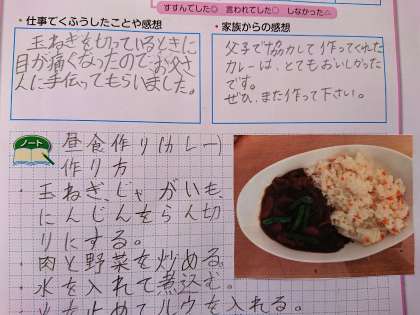 すすんでした◎ 言われてした○ しなかった△
・仕事でくふうしたことや感想
玉ねぎを切っているときに
目が痛くなったので、お父さ
んに手伝ってもらいました。
・家族からの感想
父子で協力して作ってくれた
カレーは、とてもおいしかった
です。
ぜひ、また作って下さい。
ノート
昼食作り(カレー)
作り方
・玉ねぎ、じゃがいも、
にんじんをらん切
りにする。
・肉と野菜を炒める。
・水を入れて煮込む。
・火を止めてルウを入れる。